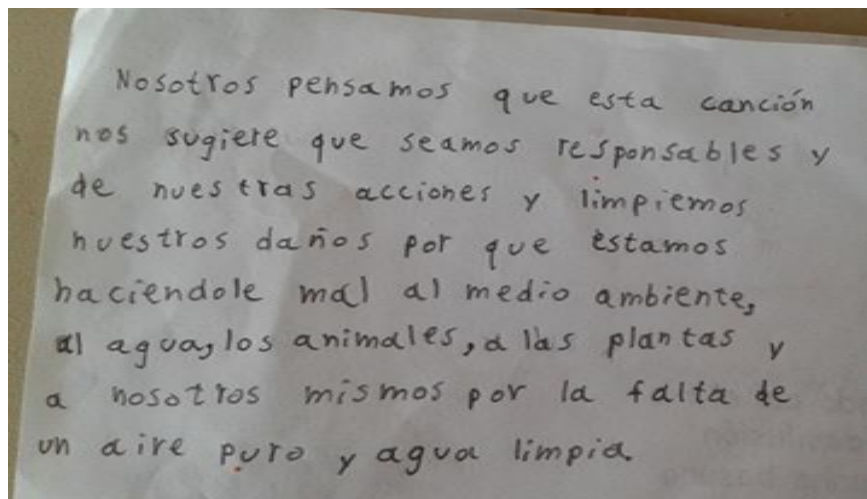 Nosotros pensamos que esta canción
nos sugiere que seamos responsables y
de nuestras acciones y limpiemos
nuestros daños por que estamos
haciendole mal al medio ambiente,
al agua, los animales, a las plantas y
a nosotros mismos por la falta de
un aire puro y agua limpia.